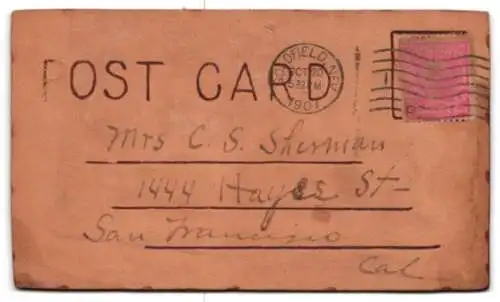 POST CARD
GOLDFIELD, NEV.
OCT 20
1907
Mrs C. S. Sherman
1444 Hayes St-
San Francisco
Cal